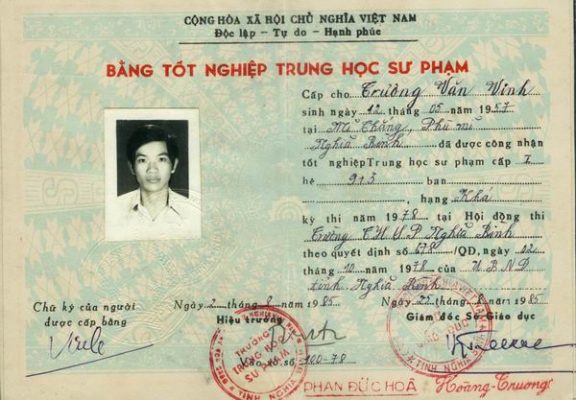 CỘNG HÒA XÃ HỘI CHỦ NGHĨA VIỆT NAM
Độc lập - Tự do - Hạnh phúc
BẰNG TỐT NGHIỆP TRUNG HỌC SƯ PHẠM
Cấp cho Trương Văn Vinh
sinh ngày 12 tháng 05 năm 1957
tại Mĩ Thắng, Phù mĩ
Nghĩa Bình đã được công nhận
tốt nghiệp Trung học sư phạm cấp I
hệ 9+3 ban
, hạng Khá
kỳ thi năm 1978 tại Hội động thi
Trường THSP Nghĩa Bình
theo quyết định số 678 /QĐ, ngày 02
tháng 10 năm 1978 của UBND
tỉnh Nghĩa Bình
Chữ ký của người
được cấp bằng
Ngày 2 tháng 8 năm 1985
Hiệu trưởng
Ngày 22 tháng 8 năm 1985
Giám đốc Sở Giáo dục
TRƯỜNG
TRUNG HỌC
SƯ PHẠM
Vào sổ số 100-78
PHAN ĐỨC HOÁ
Hoàng-Chương